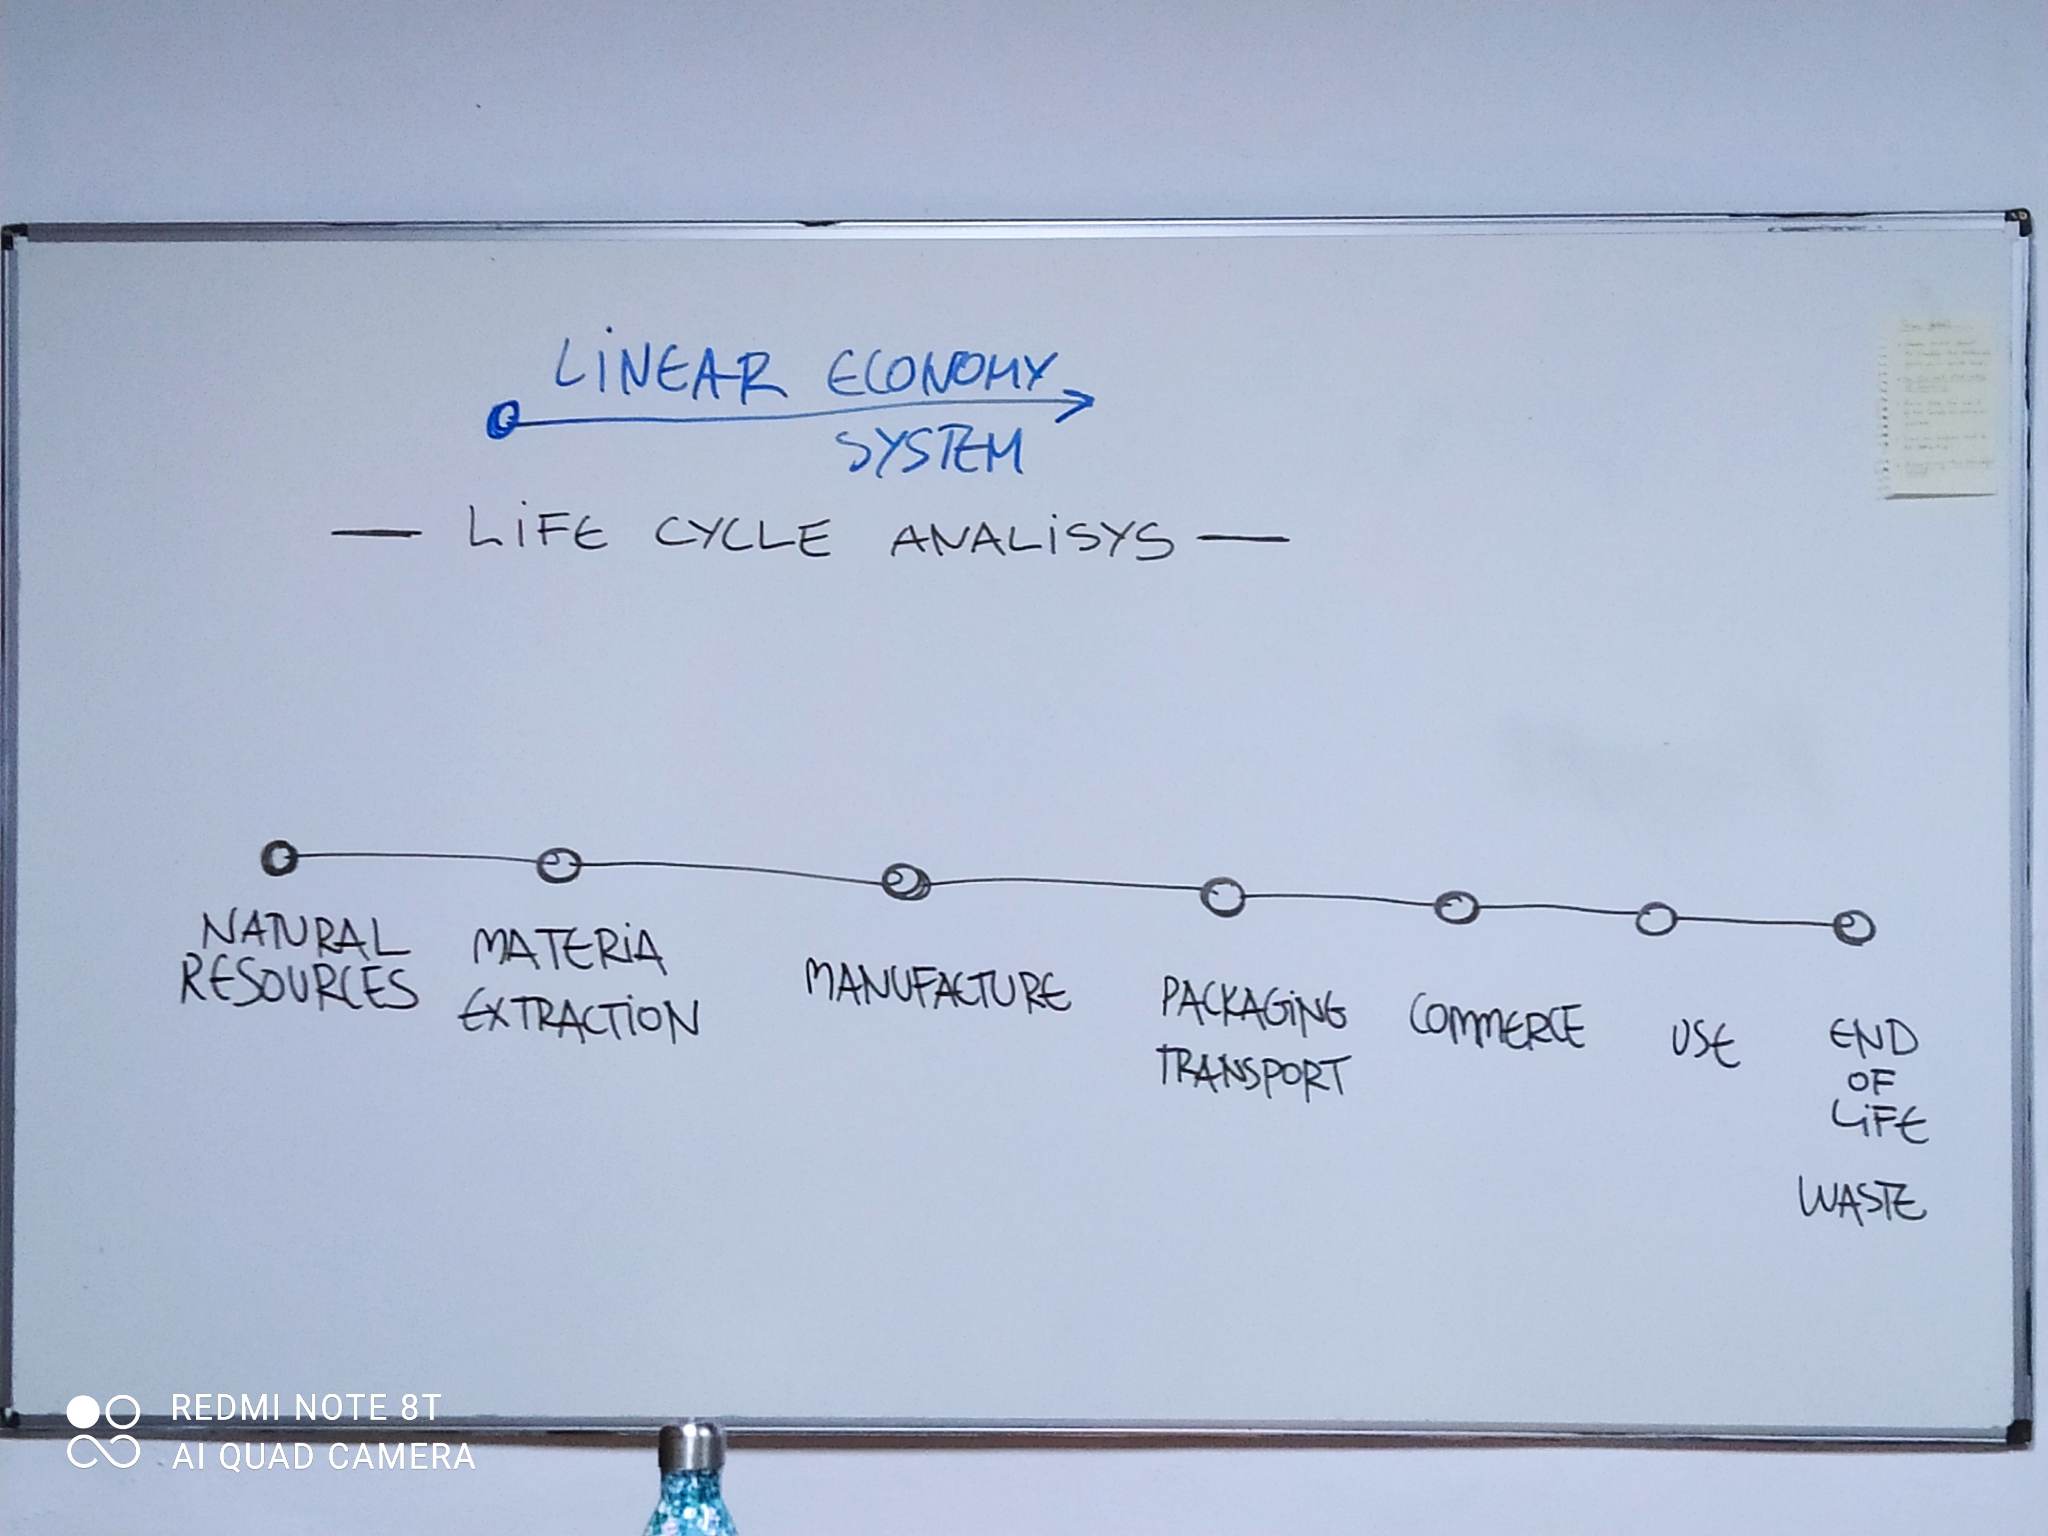 LiNEAR ECONOMY
SYSTEM
— LiFE CYCLE ANALiSYS —
NATURAL
RESOURCES
MATERiA
EXTRACTiON
MANUFACTURE
PACKAGiNG
TRANSPORT
COMMERCE
USE
END
OF
LiFE
WASTE
REDMI NOTE 8T
AI QUAD CAMERA